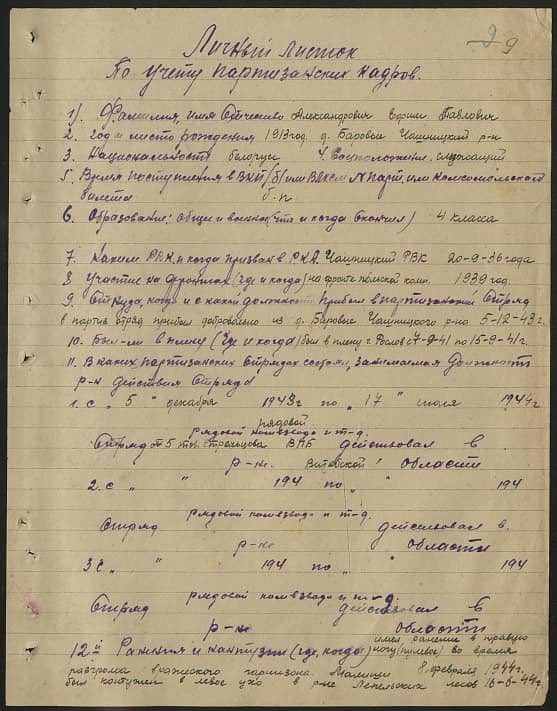 9 9
Личный листок
По учету партизанских кадров.
1). Фамилия, имя Отчество Александрович Ефрим Павлович
2. год и место рождения 1913 год. д. Баровые Чашницкий р-н
3. Национальность белорус 4. Соцположение. служащий
5. Время поступления в ВКП/б/ или ВЛКСМ № парт. или комсомольского
билета б.п
6. Образование: Общее и военное (что и когда окончил) 4 класса
7. Каким РВК, и когда призван в РККА. Чашницкий РВК 20-9-36 года
8 Участие на фронтах (где и когда) на фронте польской камп. 1939 год.
9. Откуда, когда и с какой должности прибыл в партизанский отряд
в партиз отряд прибыл добровольно из д. Баровые Чашницкого р-на 5-12-43 г.
10. Был-ли в плену (где и когда) был в плену г. Рославль 7-9-41 по 15-9-41 г.
11. В каких, партизанских отрядах состоял, занимаемая должность
р-н действия отряда
1. с „ 5 " декабря 1943 г по „ 17 " июля 1944 г
рядовой
рядовой комвзвода и т-д.
Отряд от 5 тов. Стрельцова ВПБ действовал в
р-не. Витебской области
2. с „ " 194 по „ " 194
рядовой комвзвода и т-д.
Отряд действовал в.
р-не области
3 с „ " 194 по „ " 194
рядовой комвзвода и т-д.
Отряд действовал в
р-не области
12й Ранения и контузии (где, когда) имел ранение в правую
ногу (пулевое) во время
разгрома вражеского гарнизона. 8 февраля 1944 г.
был контужен в левое ухо в р-не Лепельских лесов 16-6-44 г.